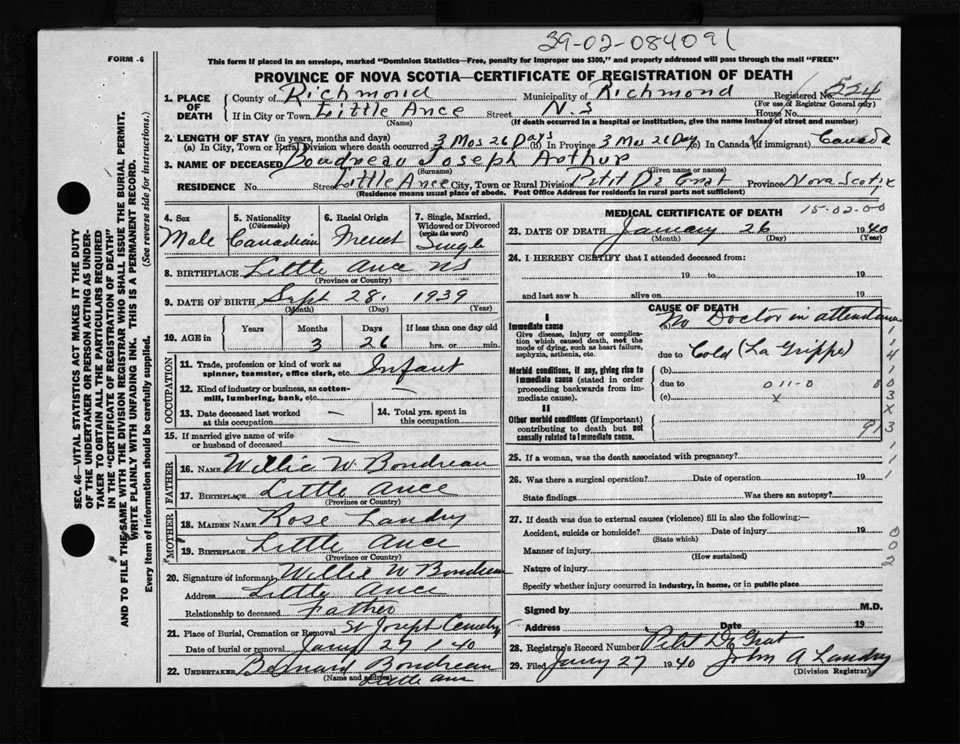 39-02-084091
FORM 6
This form if placed in an envelope, marked "Dominion Statistics—Free, penalty for improper use $300," and properly addressed will pass through the mail "FREE"
PROVINCE OF NOVA SCOTIA—CERTIFICATE OF REGISTRATION OF DEATH
1. PLACE OF DEATH
County of Richmond Municipality of Richmond Registered No. 524
(For use of Registrar General only)
If in City or Town Little Ance Street N.S House No.
(Name) (If death occurred in a hospital or institution, give the name instead of street and number)
2. LENGTH OF STAY (in years, months and days)
(a) In City, Town or Rural Division where death occurred 3 Mos 26 Days (b) In Province 3 Mos 26 Days (c) In Canada (if immigrant) Canada
3. NAME OF DECEASED Boudreau Joseph Arthur
(Surname) (Given name or names)
RESIDENCE No. Street Little Ance City, Town or Rural Division Petit De Grat Province Nova Scotia
(Residence means usual place of abode. Post Office Address for residents in rural parts not sufficient)
4. Sex
Male
5. Nationality
(Citizenship)
Canadian
6. Racial Origin
French
7. Single, Married, Widowed or Divorced
(write the word)
Single
8. BIRTHPLACE Little Ance NS
(Province or Country)
9. DATE OF BIRTH Sept 28. 1939
(Month) (Day) (Year)
10. AGE in
Years Months Days If less than one day old
3 26 hrs. or min.
OCCUPATION
11. Trade, profession or kind of work as
spinner, teamster, office clerk, etc. Infant
12. Kind of industry or business, as cotton-
mill, lumbering, bank, etc. —
13. Date deceased last worked
at this occupation —
14. Total yrs. spent in
this occupation
15. If married give name of wife
or husband of deceased —
FATHER
16. NAME Willie W. Boudreau
17. BIRTHPLACE Little Ance
(Province or Country)
MOTHER
18. MAIDEN NAME Rose Landry
19. BIRTHPLACE Little Ance
(Province or Country)
20. Signature of informant Willie W Boudreau
Address Little Ance
Relationship to deceased Father
21. Place of Burial, Cremation or Removal St Joseph Cemetry
Date of burial or removal Jany 27 1940
22. UNDERTAKER Bernard Boudreau
(Name and address) Little Ance
MEDICAL CERTIFICATE OF DEATH
15-02-00
23. DATE OF DEATH January 26 1940
(Month) (Day) (Year)
24. I HEREBY CERTIFY that I attended deceased from:
19 to 19
and last saw h alive on 19
CAUSE OF DEATH
I
Immediate cause
Give disease, injury or complication which caused death, not the mode of dying, such as heart failure, asphyxia, asthenia, etc.
(a) No Doctor in attendance
due to Cold (La Grippe)
Morbid conditions, if any, giving rise to immediate cause (stated in order proceeding backwards from immediate cause).
(b)
due to
(c)
II
Other morbid conditions (if important) contributing to death but not causally related to immediate cause.
25. If a woman, was the death associated with pregnancy?
26. Was there a surgical operation? Date of operation 19
State findings Was there an autopsy?
27. If death was due to external causes (violence) fill in also the following:—
Accident, suicide or homicide? Date of injury 19
(State which)
Manner of injury
(How sustained)
Nature of injury
Specify whether injury occurred in industry, in home, or in public place
Signed by M.D.
Address Date 19
28. Registrar's Record Number Petit De Grat
29. Filed Jany 27 1940 John A Landry
(Division Registrar)
SEC. 46—VITAL STATISTICS ACT MAKES IT THE DUTY
OF THE UNDERTAKER OR PERSON ACTING AS UNDER-
TAKER TO OBTAIN ALL THE PARTICULARS REQUIRED
IN THE "CERTIFICATE OF REGISTRATION OF DEATH"
AND TO FILE THE SAME WITH THE DIVISION REGISTRAR WHO SHALL ISSUE THE BURIAL PERMIT.
WRITE PLAINLY WITH UNFADING INK. THIS IS A PERMANENT RECORD.
Every item of information should be carefully supplied. (See reverse side for instructions.)